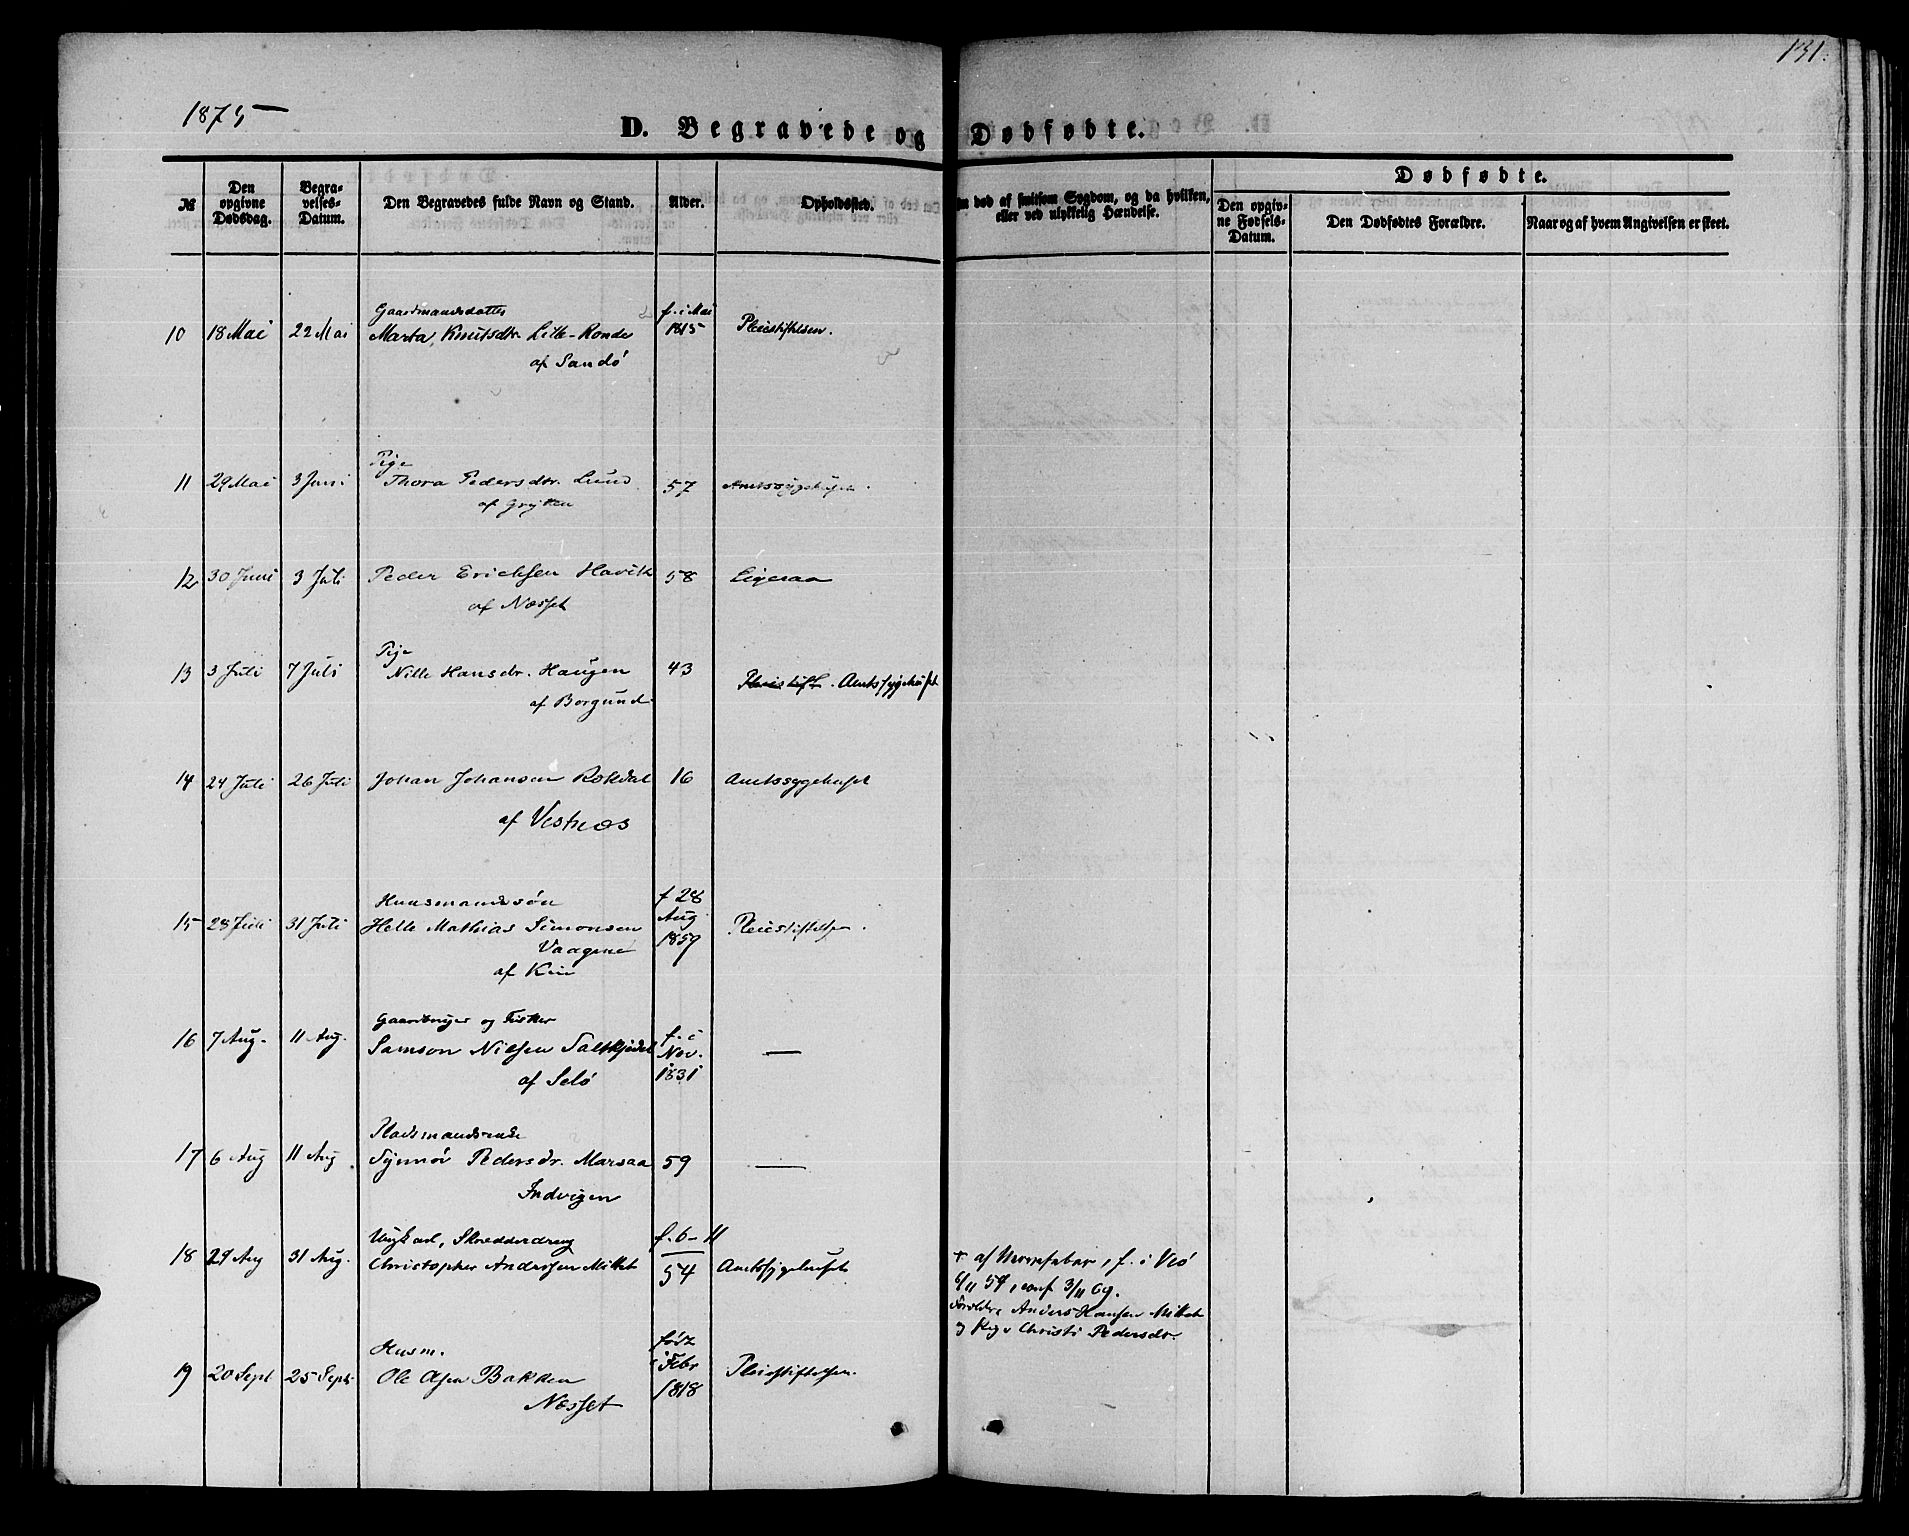 131.
1875
D. Begravede og Dødfødte.
№
Den opgivne Dødsdag.
Begravelses-Datum.
Den Begravedes fulde Navn og Stand.
Alder.
Opholdssted.
død af smitsom Sygdom, og da hvilken, eller ved ulykkelig Hændelse.
Dødfødte.
Den opgivne Fødsels-Datum.
Den Dødfødtes Forældre.
Naar og af hvem Angivelsen er skeet.
Gaardmandsdatter f. i Mai
10 18 Mai 22 Mai Marta Knutsdtr. Lille-Ronde 1815 Pleiestiftelsen.
af Sandø
Pige
11 29 Mai 3 Juni Thora Pedersdtr. Lund 57 Amtssygehuset.
af Grytten
12 30 Juni 3 Juli Peder Ericksen Havik 58 Eigeraa
af Næsset
Pige
13 3 Juli 7 Juli Nille Hansdr. Haugen 43 Pleiestift. Amtssygehuset
af Borgund
14 24 Juli 26 Juli Johan Johansen Rekdal 16 Amtssygehuset
af Vestnæs
Huusmandssøn f 28
15 28 Juli 31 Juli Helle Mathias Simonsen Aug 1859 Pleiestiftelsen.
Vaagene
af Kin
Gaardbruger og Fisker
16 7 Aug. 11 Aug. Samson Nilsen f. i Nov. 1831 —
af Selø
Pladsmandsenke
17 6 Aug 11 Aug Synnøv Pedersdr. Marsaa 59 —
Indvigen
Ungkarl, Skrædderdreng f. 6-11
18 29 Aug 31 Aug. Christopher Anderssen Mittet 54 Amtssygehuset
af Nervefeber, f. i Veø
6/11 54, conf 3/11 69.
Forældre Anders Hansen Mittet
og Christi Pedersdr.
Husm. født
19 20 Sept 25 Sept Ole Olsen Bakken i Febr 1818 Pleiestiftelsen.
Næsset